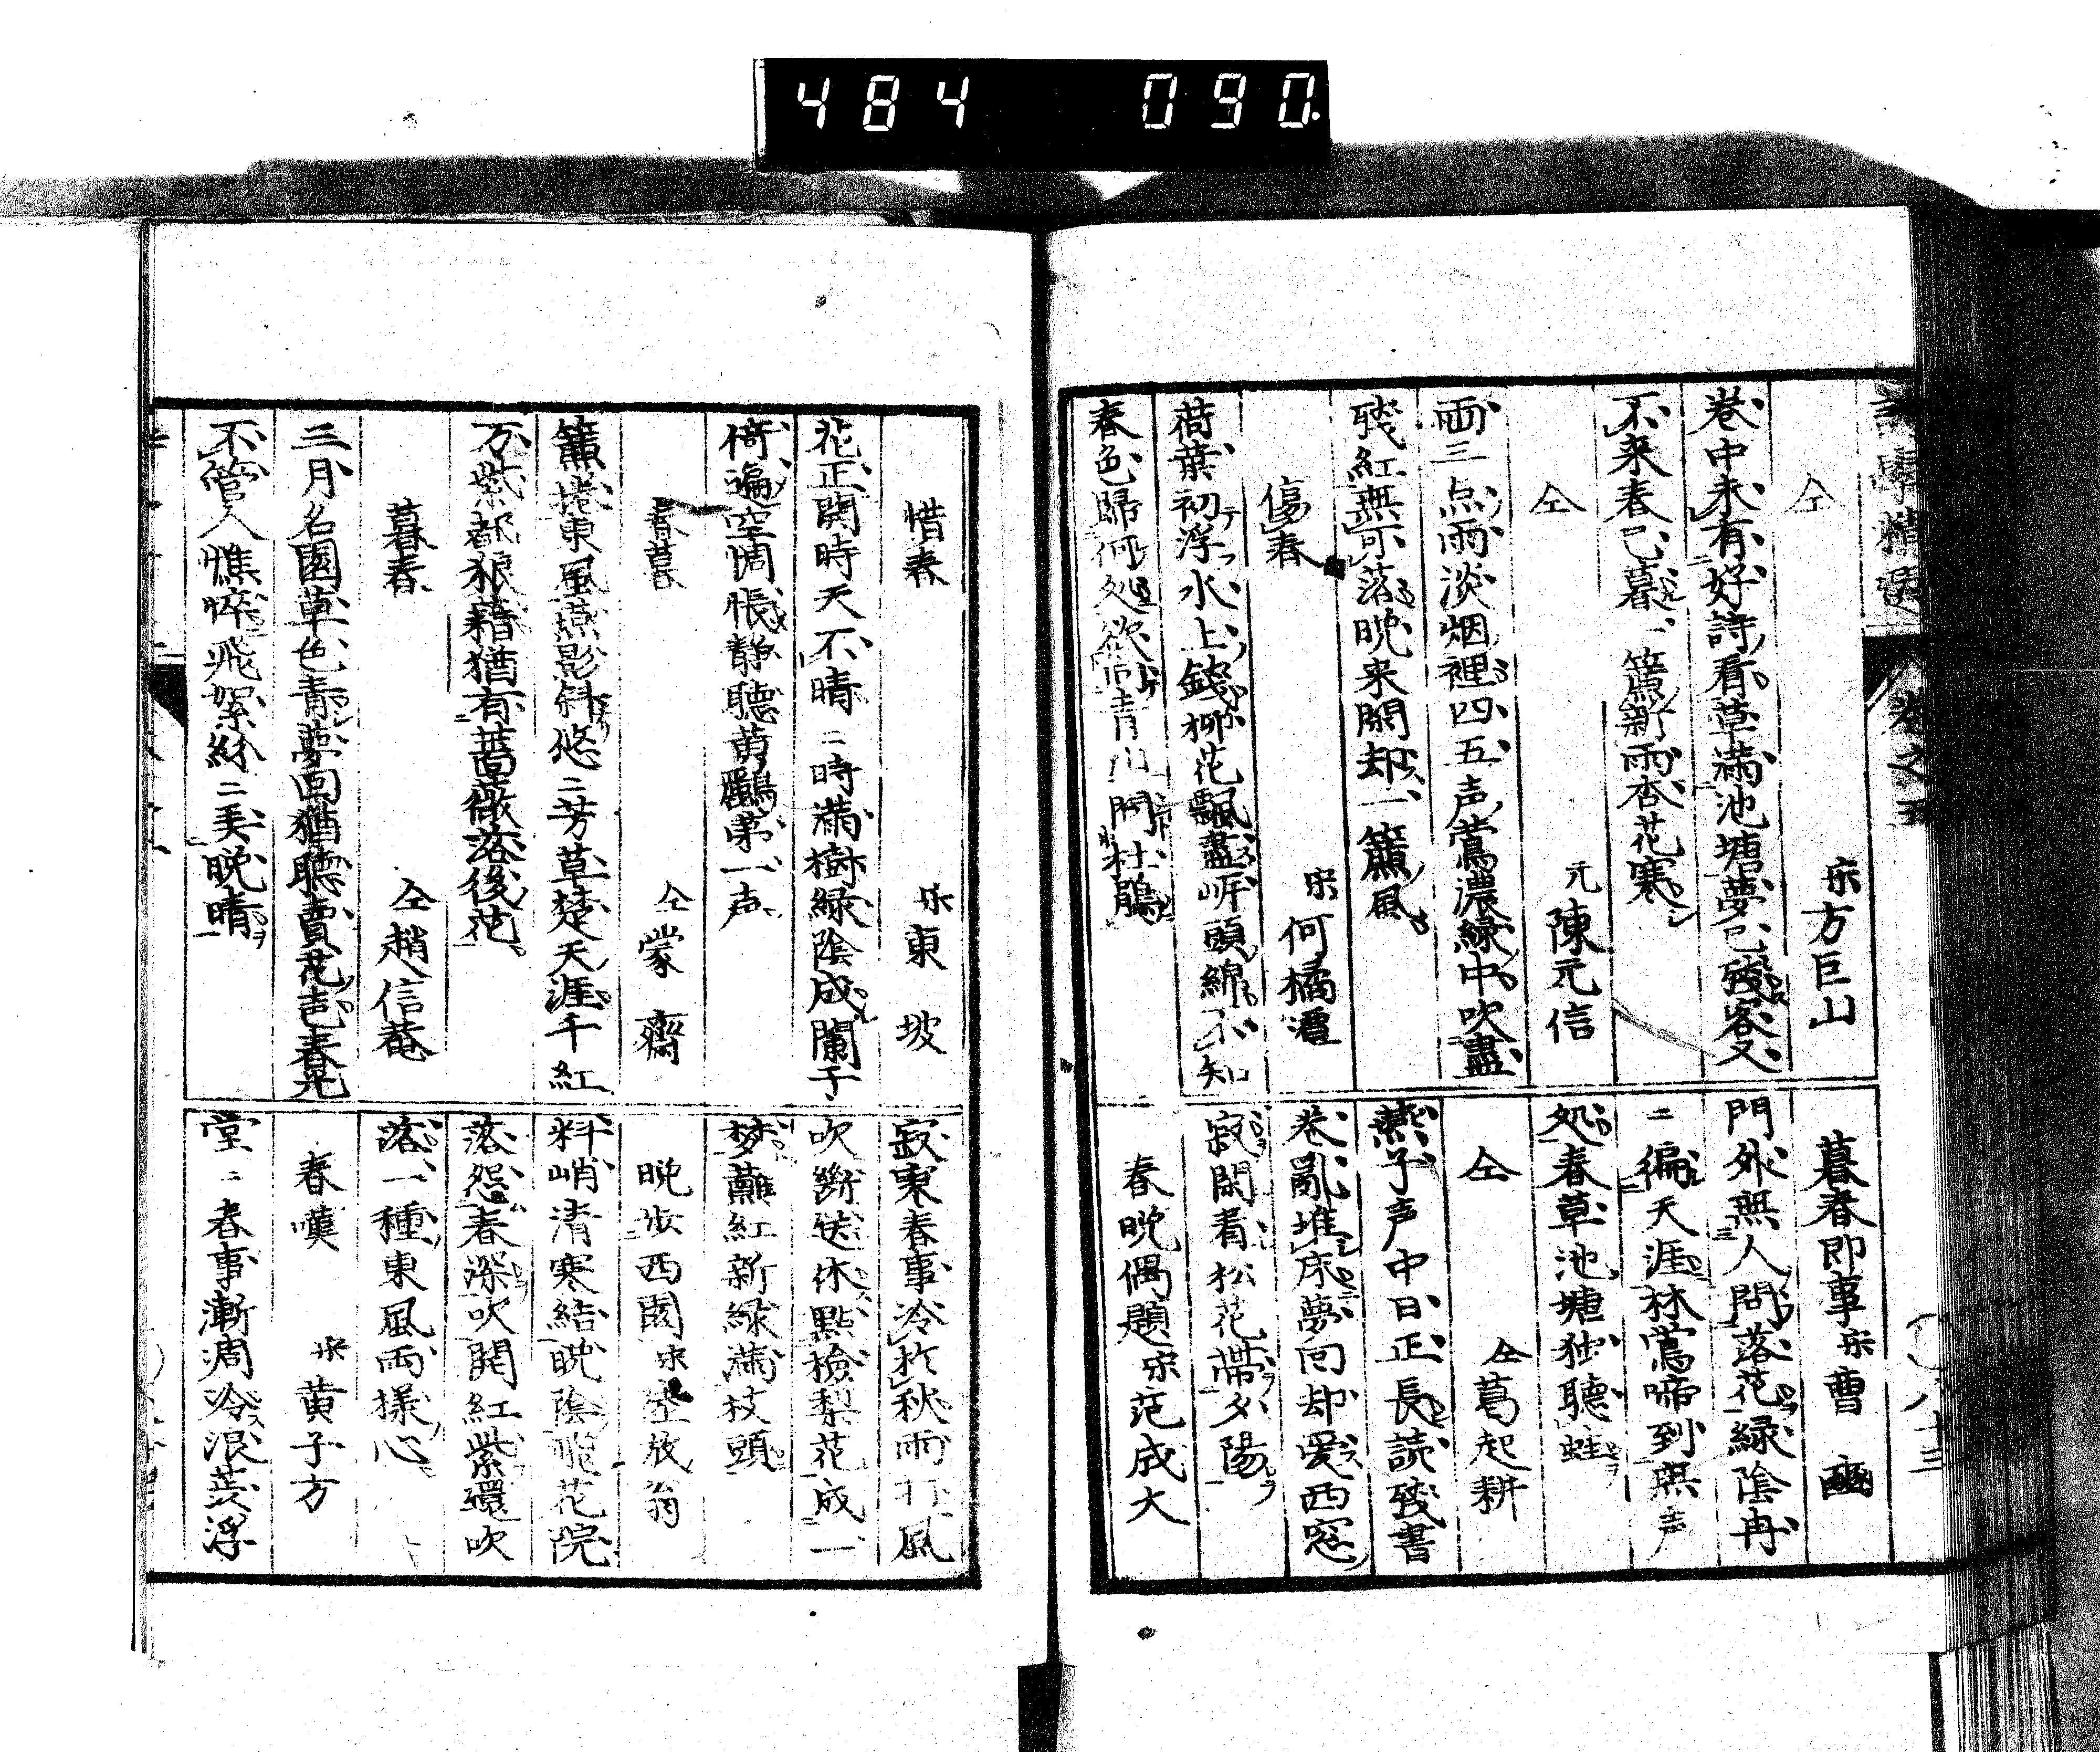 484 090.
仝 宋方巨山
巻中未有好詩看草満池塘夢已残客又
不来春已暮一簾新雨杏花寒
仝 元陳元信
両三点雨淡烟裡四五声鶯濃緑中吹盡
残紅無可落晩来閑却一簾風
傷春 宋何橘潭
荷葉初浮水上銭柳花飄盡岸頭綿不知
春色歸何处欲
杜鵑
暮春即事宋曹豳
門外無人問落花緑陰冉
〻徧天涯林鶯啼到無声
処春草池塘独聴蛙
仝 仝葛起耕
燕子声中日正長読残書
巻亂堆床夢回却愛西窓
寂閑看松花帯夕陽
春晩偶題宋范成大
巻之五
八十三
惜春 宋東坡
花正開時天不晴〻時満樹緑陰成闌干
倚遍空惆悵静聴黄鸝第一声
春暮 仝蒙齋
簾捲東風燕影斜悠〻芳草楚天涯千紅
万紫都狼藉猶有薔薇落後花
暮春 仝趙信菴
三月名園草色青夢回猶聴賣花声春光
不管人憔悴飛絮絲〻美晩晴
寂寞春事冷於秋雨打風
吹断送休點檢梨花成一
梦蘸紅新緑満枝頭
晩歩西園宋 放翁
料峭清寒結晩陰飛花院
落怨春深吹開紅紫還吹
落一種東風両様心
春嘆 宋黄子方
堂〻春事漸周 浮